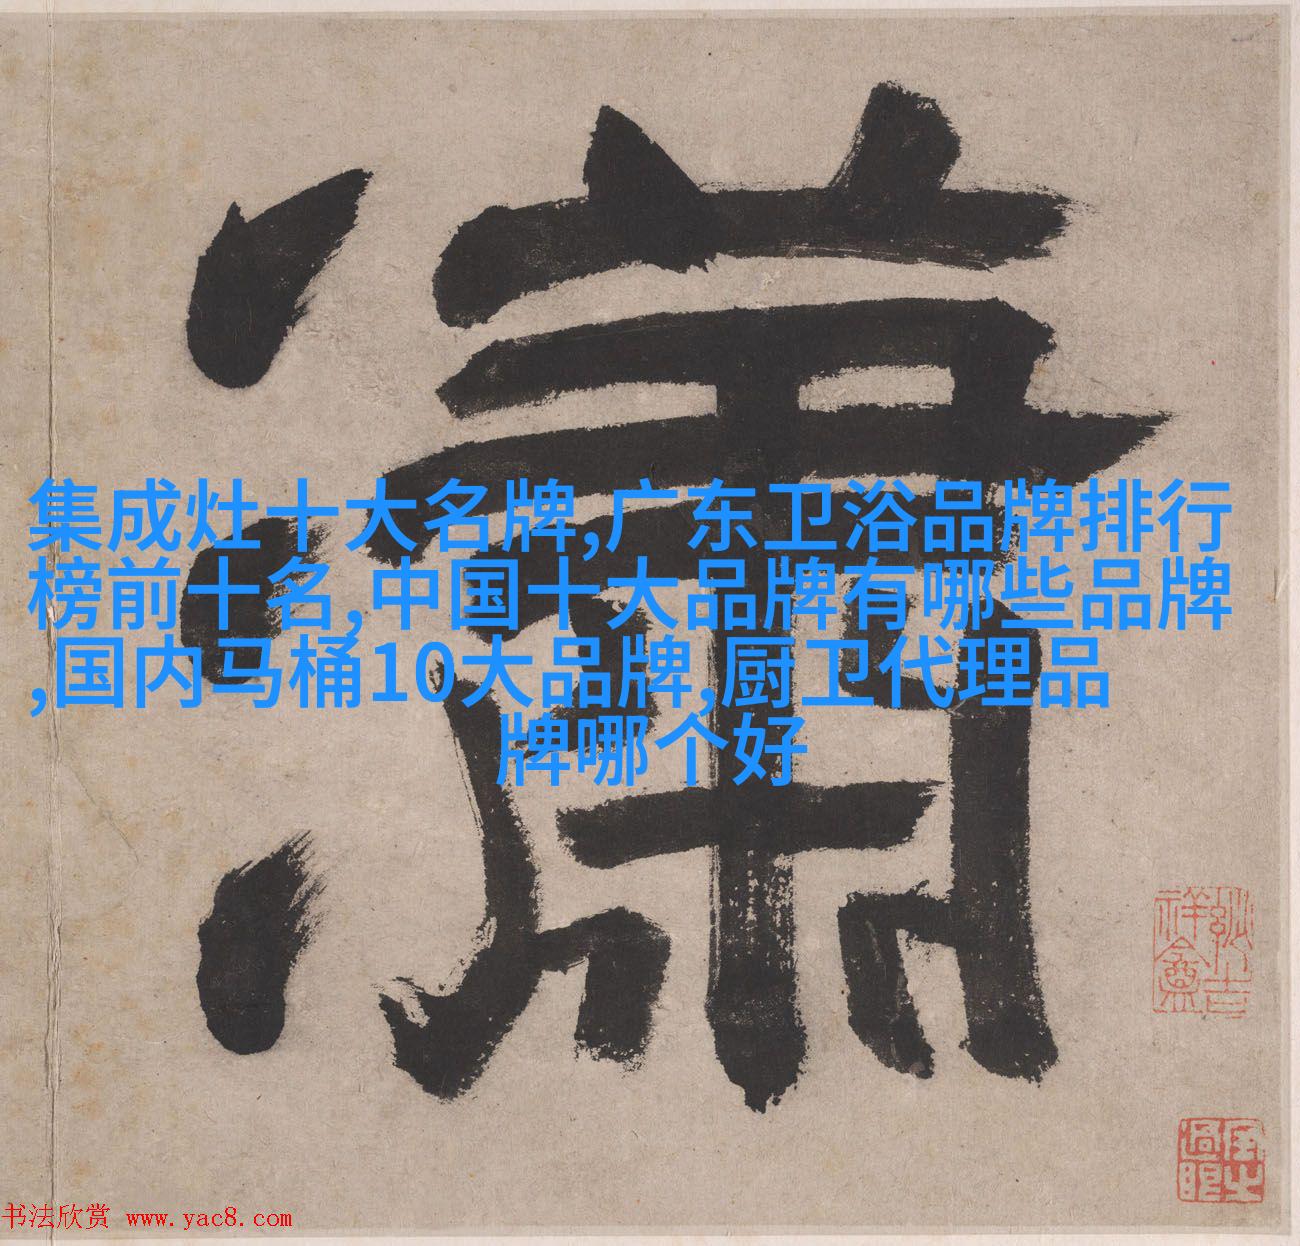 瀟
集成灶十大名牌,广东卫浴品牌排行
榜前十名,中国十大品牌有哪些品牌
,国内马桶10大品牌,厨卫代理品
牌哪个好
书法欣赏 www.yac8.com